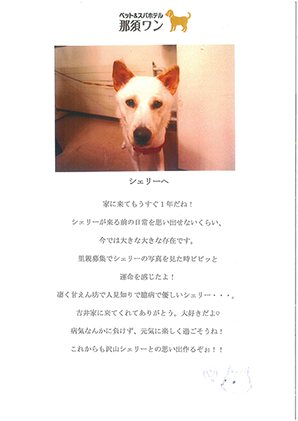 ペット&スパホテル
那須ワン
シェリーへ
家に来てもうすぐ1年だね！
シェリーが来る前の日常を思い出せないくらい、
今では大きな大きな存在です。
里親募集でシェリーの写真を見た時ビビッと
運命を感じたよ！
凄く甘えん坊で人見知りで臆病で優しいシェリー・・・。
吉井家に来てくれてありがとう。大好きだよ♡
病気なんかに負けず、元気に楽しく過ごそうね！
これからも沢山シェリーとの思い出作るぞぉ！！